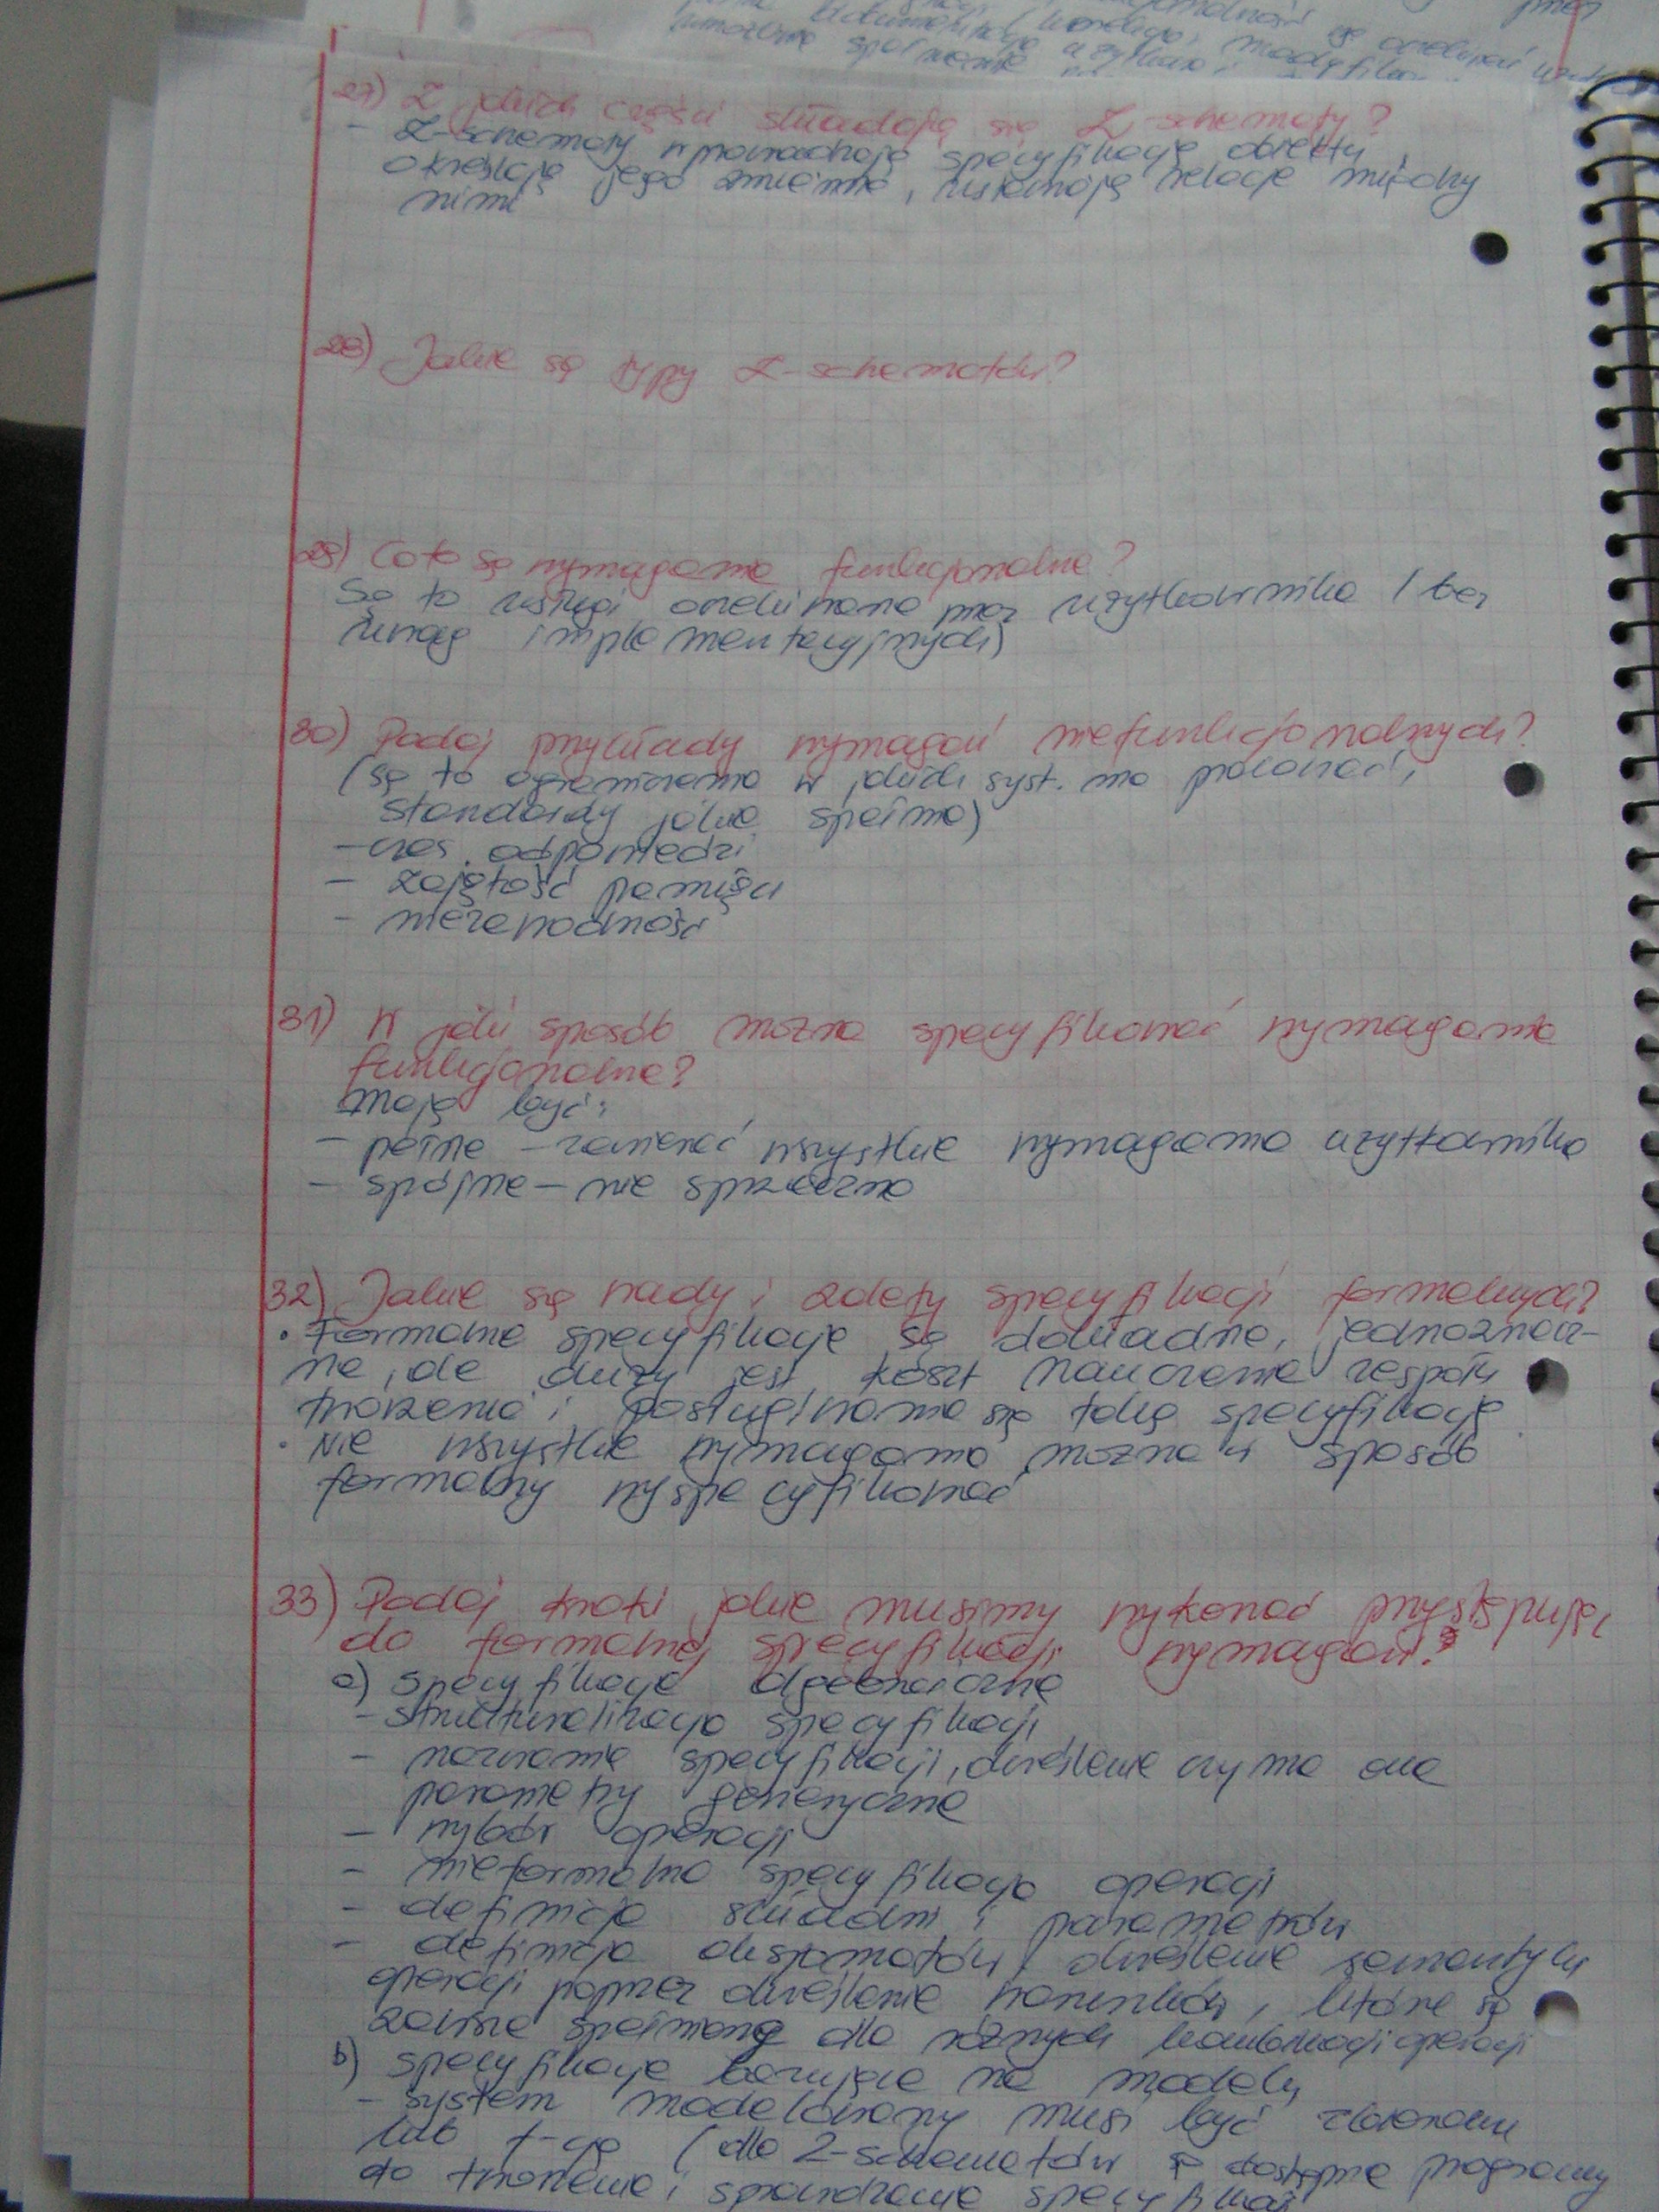 27) Z jakich części składają się Z-schematy?
- Z-schematy wprowadzają specyfikację obiektu,
określają jego zmienne, ustanawiają relacje między
nimi
28) Jakie są typy Z-schematów?
29) Co to są wymagania funkcjonalne?
Są to usługi oczekiwane przez użytkownika (bez
uwag implementacyjnych)
30) Podaj przykłady wymagań niefunkcjonalnych?
(są to ograniczenia w jakich syst. ma pracować,
standardy jakie spełnia)
- czas odpowiedzi
- zajętość pamięci
- niezawodność
31) W jaki sposób można specyfikować wymagania
funkcjonalne?
mają być:
- pełne - zawierać wszystkie wymagania użytkownika
- spójne - nie sprzeczne
32) Jakie są wady i zalety specyfikacji formalnych?
• Formalne specyfikacje są dokładne, jednoznacz-
ne, ale duży jest koszt nauczenia zespołu
tworzenia i posługiwania się taką specyfikacją
• Nie wszystkie wymagania można w sposób
formalny wyspecyfikować
33) Podaj kroki jakie musimy wykonać przystępując
do formalnej specyfikacji wymagań?
a) specyfikacje algebraiczne
- strukturalizacja specyfikacji
- nazwanie specyfikacji, określenie czy ma ona
parametry generyczne
- wybór operacji
- nieformalna specyfikacja operacji
- definicja składni i parametrów
- definicja aksjomatów, określenie semantyki
operacji poprzez określenie warunków, które są
zawsze spełnione dla różnych kombinacji operacji
b) specyfikacje bazujące na modelu
- system modelowany musi być zbiorami
lub f-cją (dla Z-schematów są dostępne programy
do tworzenia i sprawdzania specyfikacji